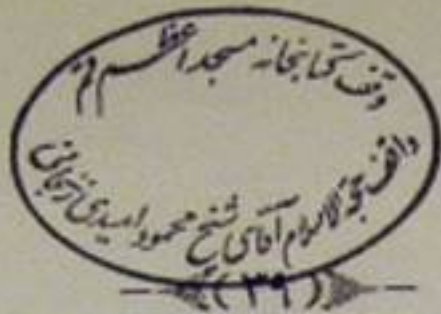 وقف کتابخانه مسجد اعظم قم
واقف حجةالاسلام آقای شیخ محمود امیدی زنجانی
(۳۹)